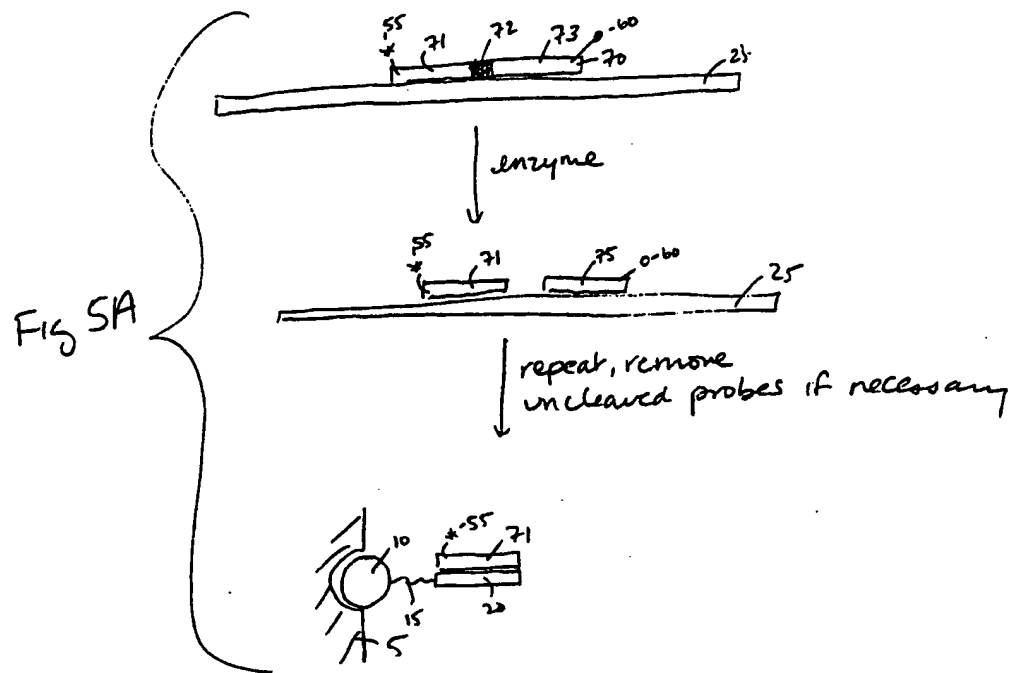 55 72 -60
* 71 73
70
25
enzyme
55 71 75 0-60
*
25
Fig 5A
repeat, remove
uncleaved probes if necessary
10 *-55 71
15 20
5